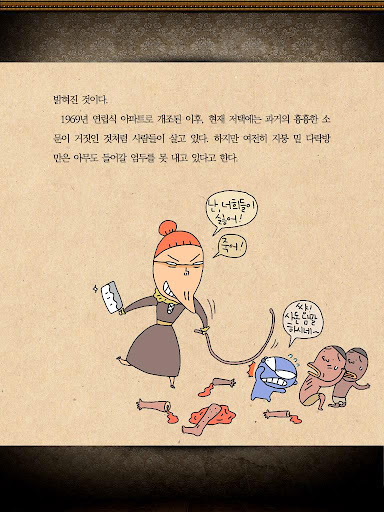 밝혀진 것이다.
1969년 연립식 아파트로 개조된 이후, 현재 저택에는 과거의 흉흉한 소
문이 거짓인 것처럼 사람들이 살고 있다. 하지만 여전히 지붕 밑 다락방
만은 아무도 들어갈 엄두를 못 내고 있다고 한다.
난, 너희들이
싫어!
죽어!
하시네~